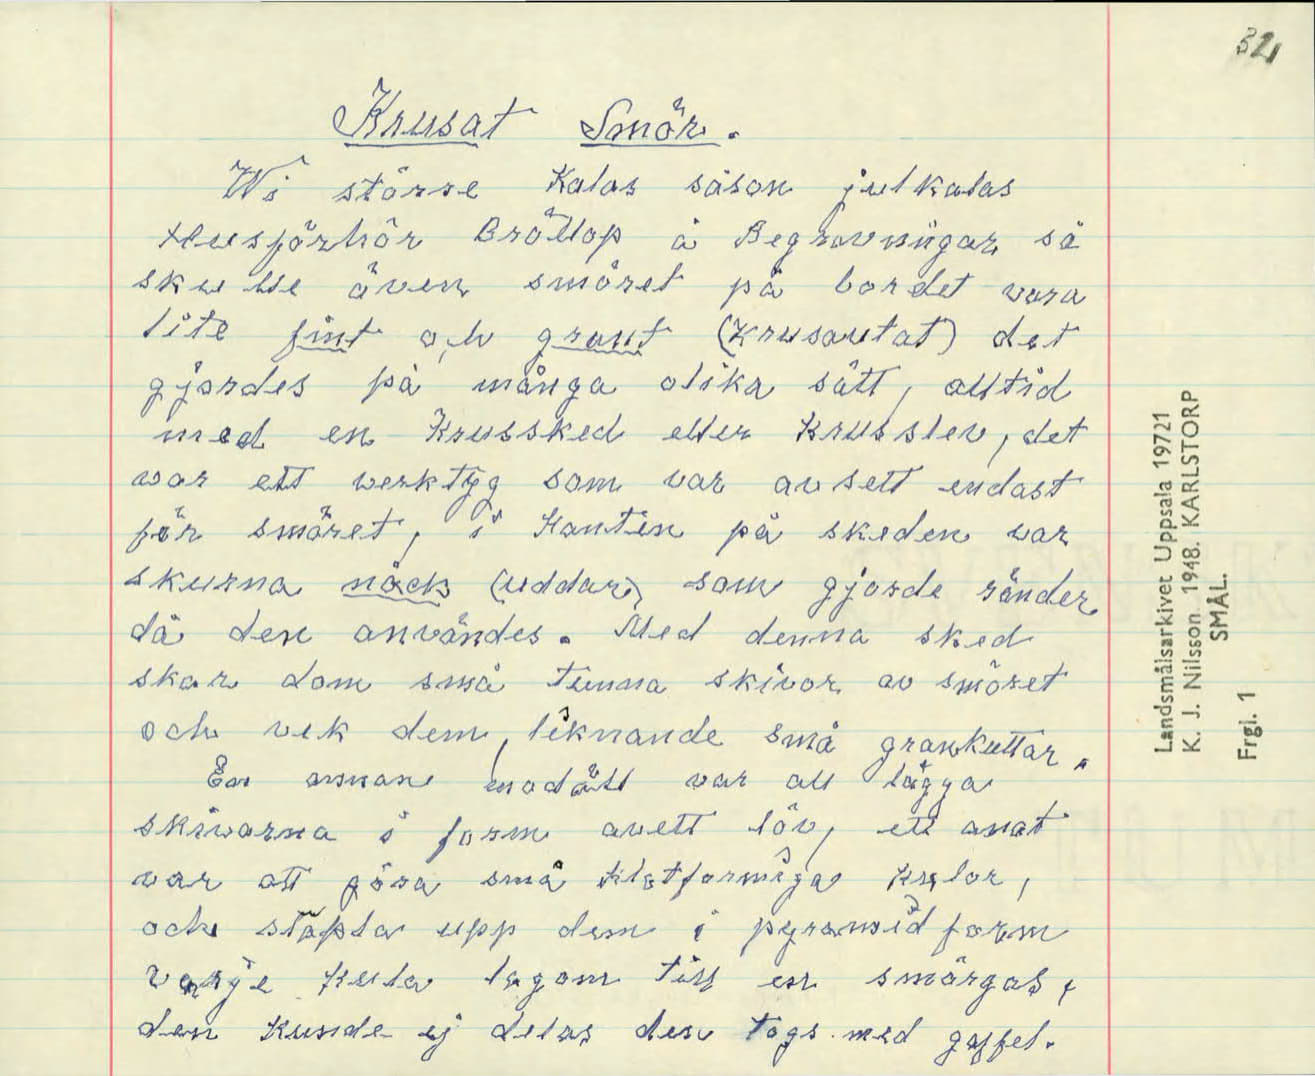 32
Krusat Smör.
Wi större Kalas såson julkalas
Husförhör Bröllop å Begravningar så
skulle även smöret på bordet vara
lite fint och grant (Krusautat) det
gjordes på många olika sätt, alltid
med en Krussked eller Krusslev, det
var ett verktyg som var avsett endast
för smöret, i Kanten på skeden var
skurna nack (uddar) som gjorde ränder
då den användes. Med denna sked
skar dom små tunna skivor av smöret
och vek dem, liknande små grankottar.
En annan modäll var att lägga
skivorna i form avett löv, ett anat
var att göra små Klotformiga Kulor,
och stapla upp dem i pyramid form
varje Kula lagom till en smörgås,
den Kunde ej delas den togs med gaffel.
Landsmålsarkivet Uppsala 19721
K. J. Nilsson. 1948. KARLSTORP
SMÅL.
Frgl. 1